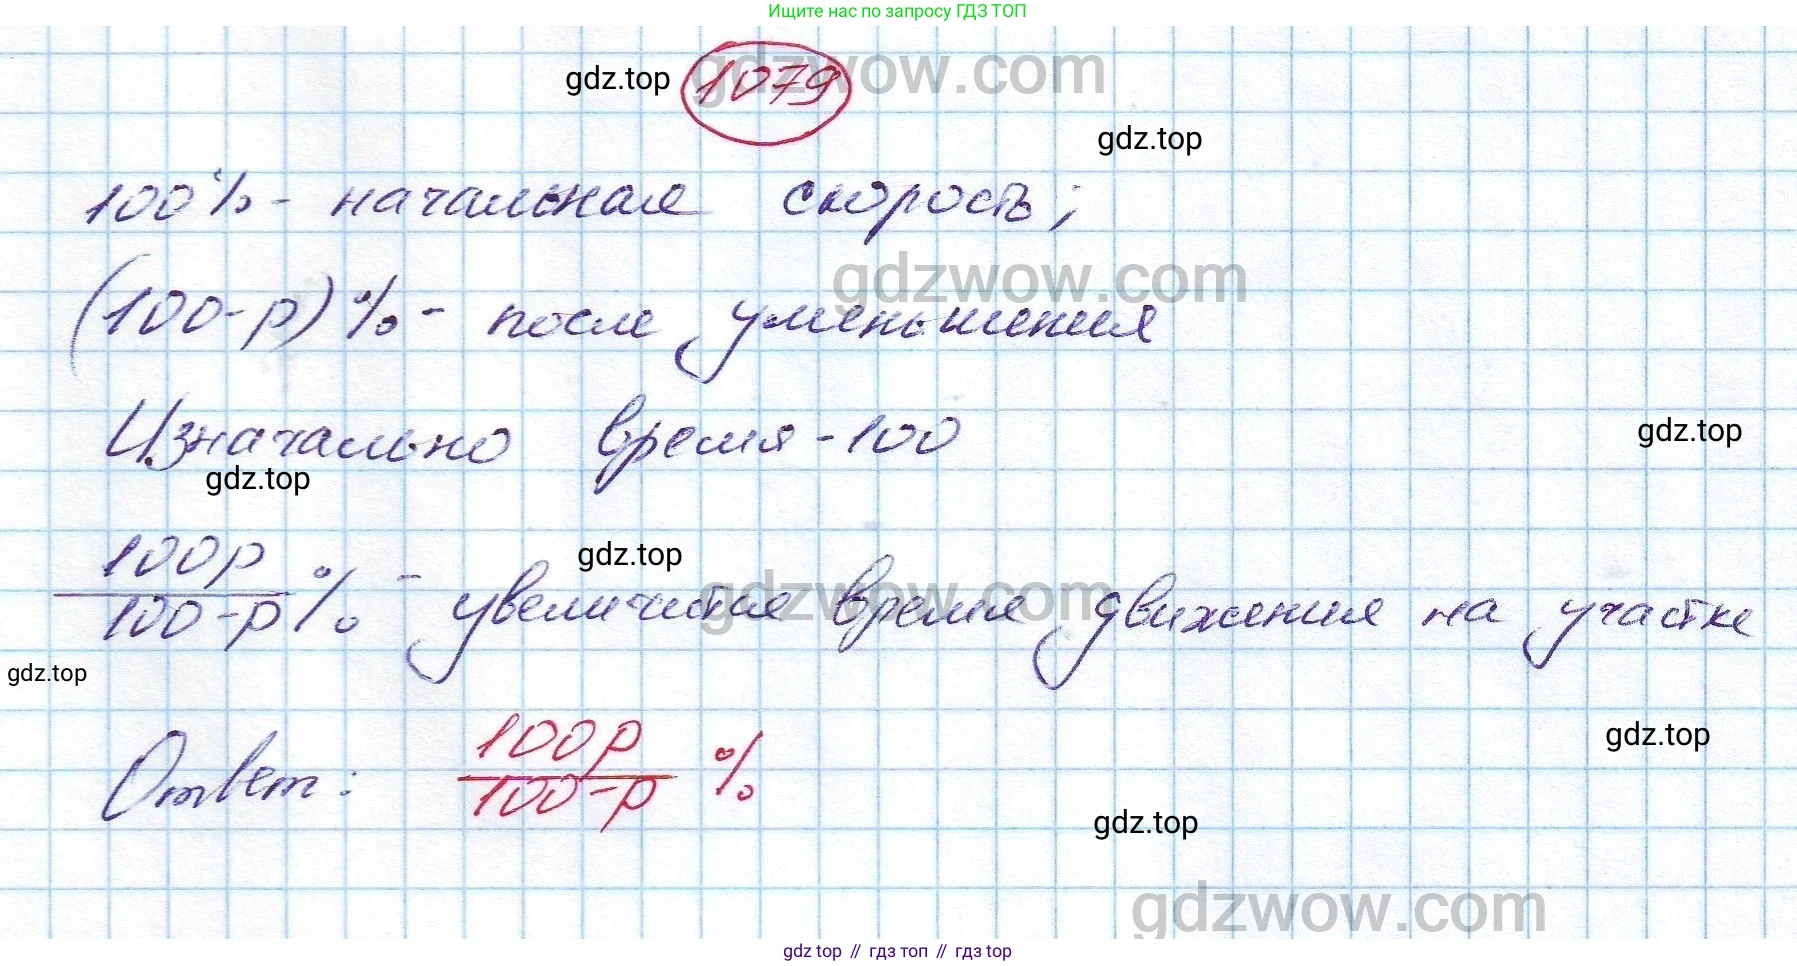 Ищите нас по запросу ГДЗ ТОП
gdzwow.com
gdz.top 1079
gdz.top
100% - начальная скорость;
gdzwow.com
(100-р)% - после уменьшения
Изначально время - 100
gdz.top
gdz.top
gdz.top
gdzwow.com
100р/100-р % - увеличится время движения на участке
gdz.top
gdz.top
Ответ: 100р/100-р %
gdz.top
gdzwow.com
gdz.top // гдз топ // гдз top